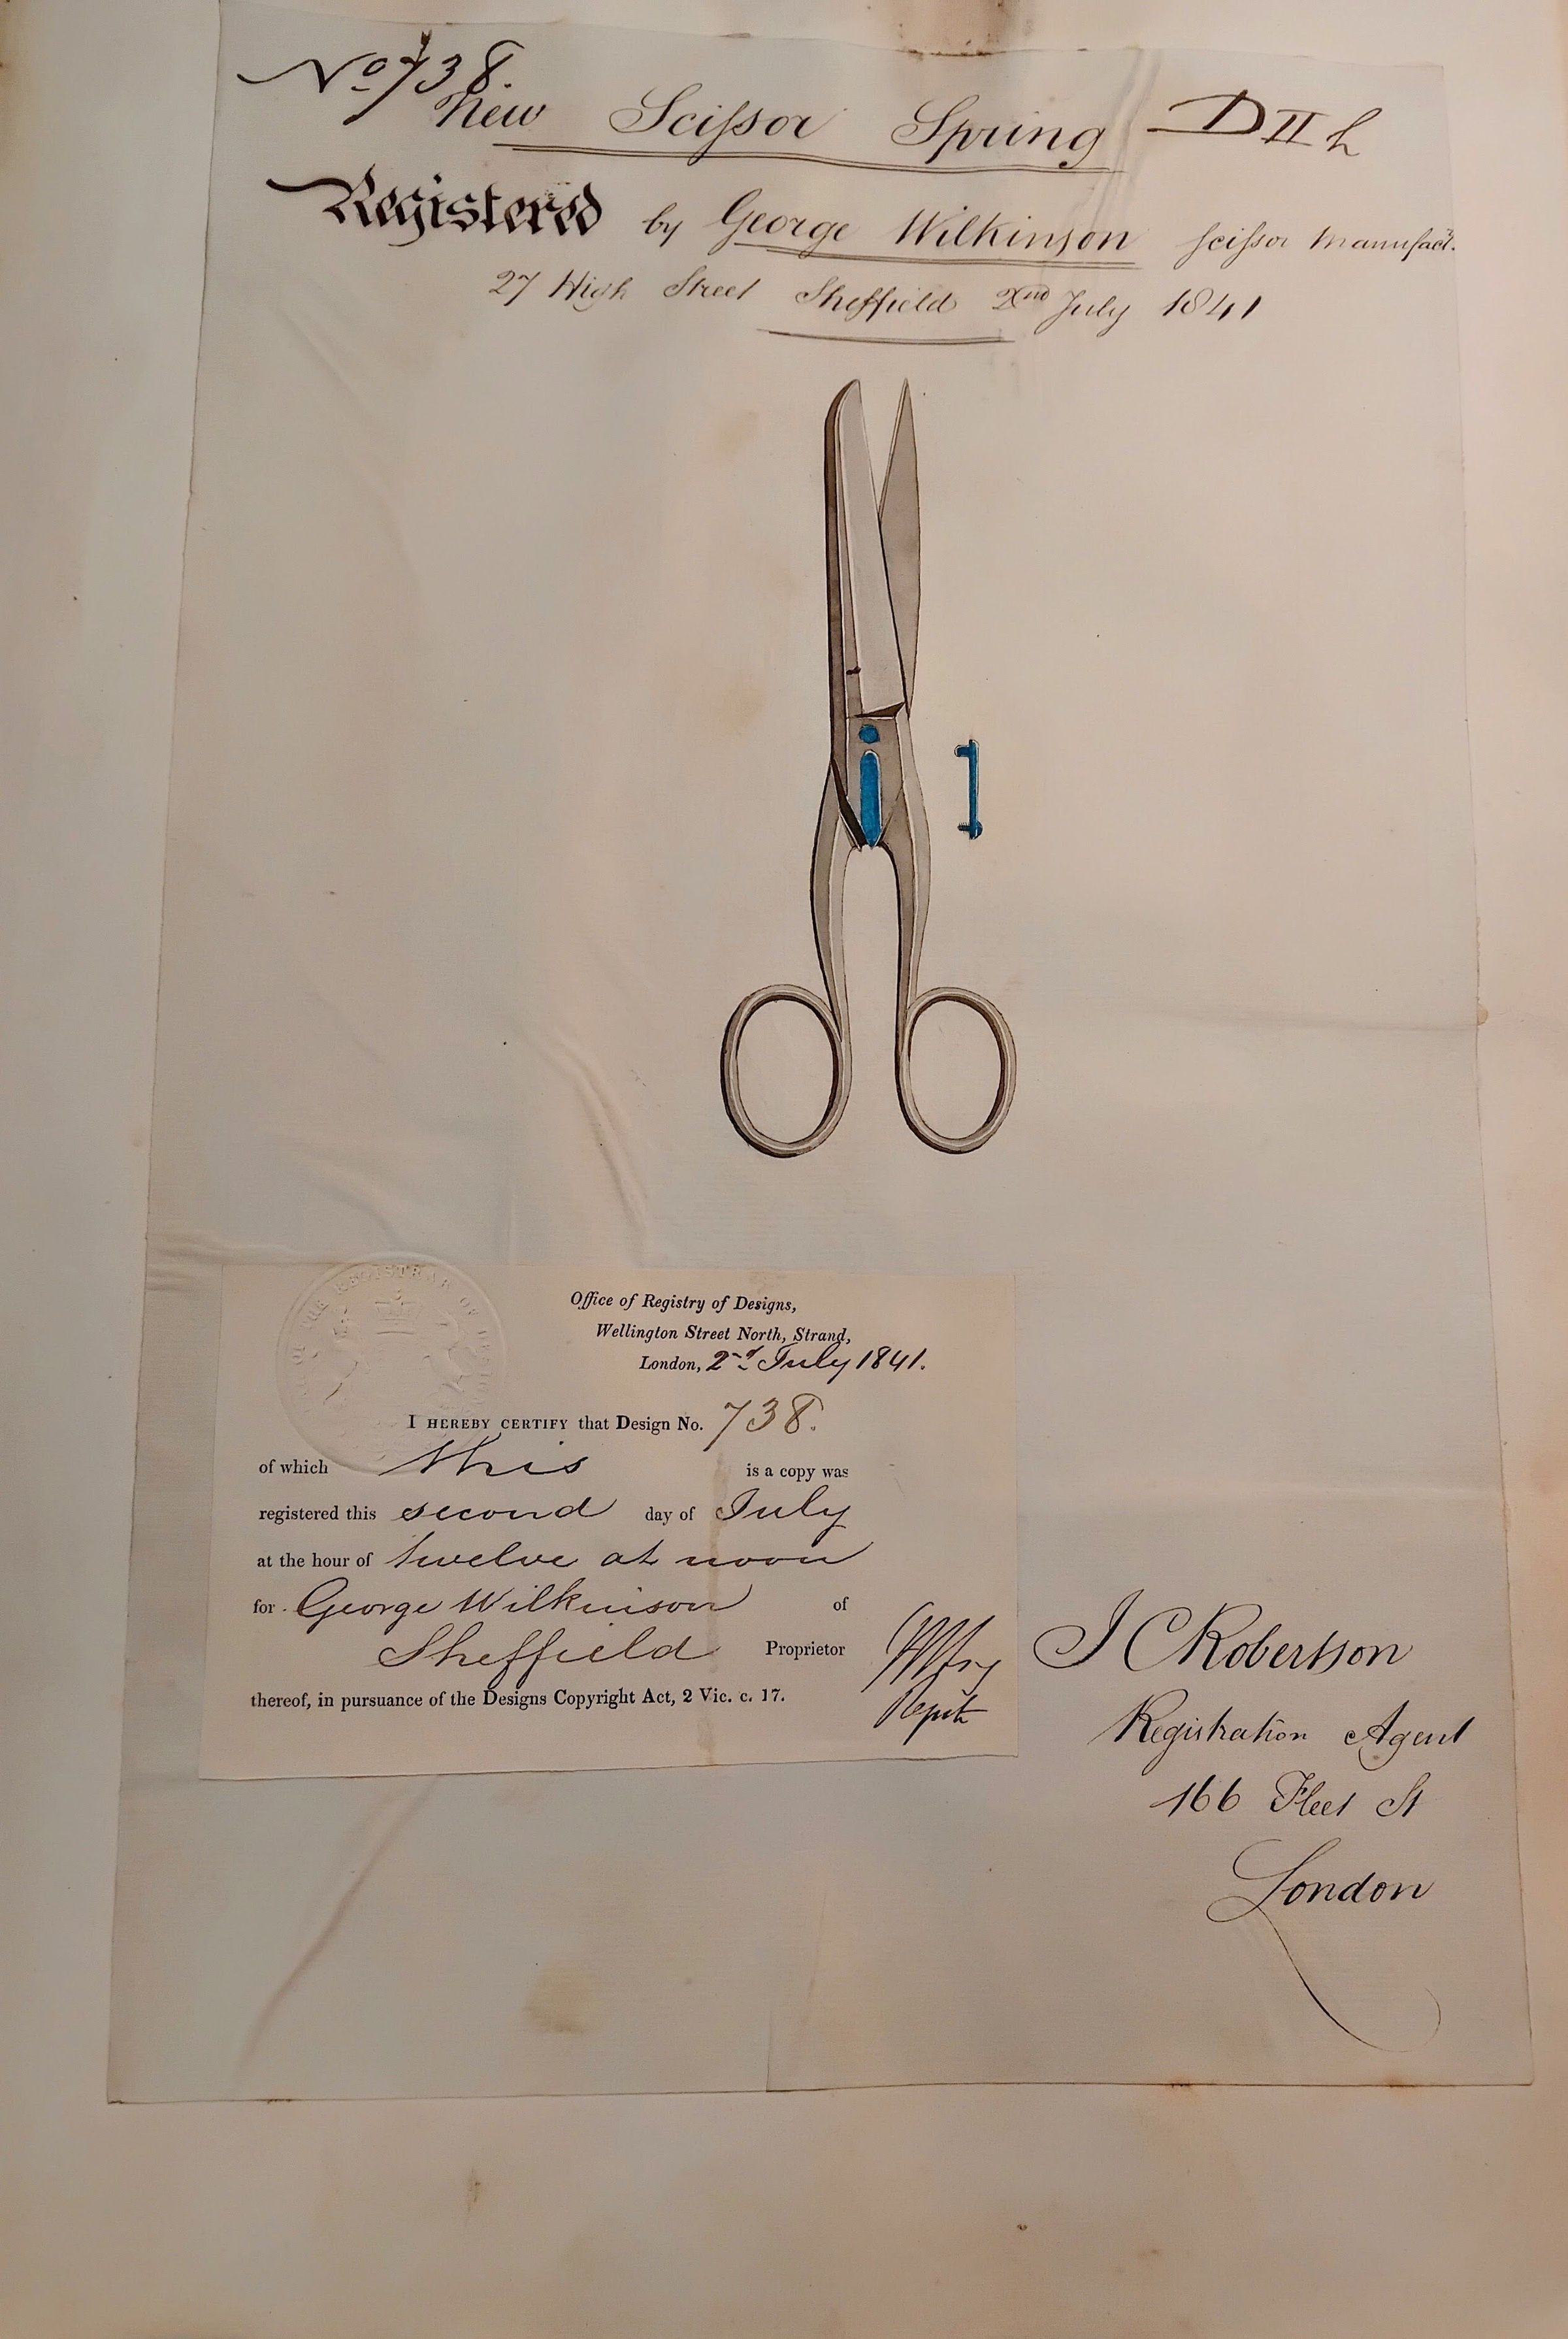 No 738.
New Scissor Spring D II h
Registered by George Wilkinson Scissor Manufact.
27 High Street Sheffield 2nd July 1841
Office of Registry of Designs,
Wellington Street North, Strand,
London, 2nd July 1841.
I HEREBY CERTIFY that Design No. 738.
of which this is a copy was
registered this second day of July
at the hour of twelve at noon
for George Wilkinson of
Sheffield Proprietor
thereof, in pursuance of the Designs Copyright Act, 2 Vic. c. 17.
J C Robertson
Registration Agent
166 Fleet St
London